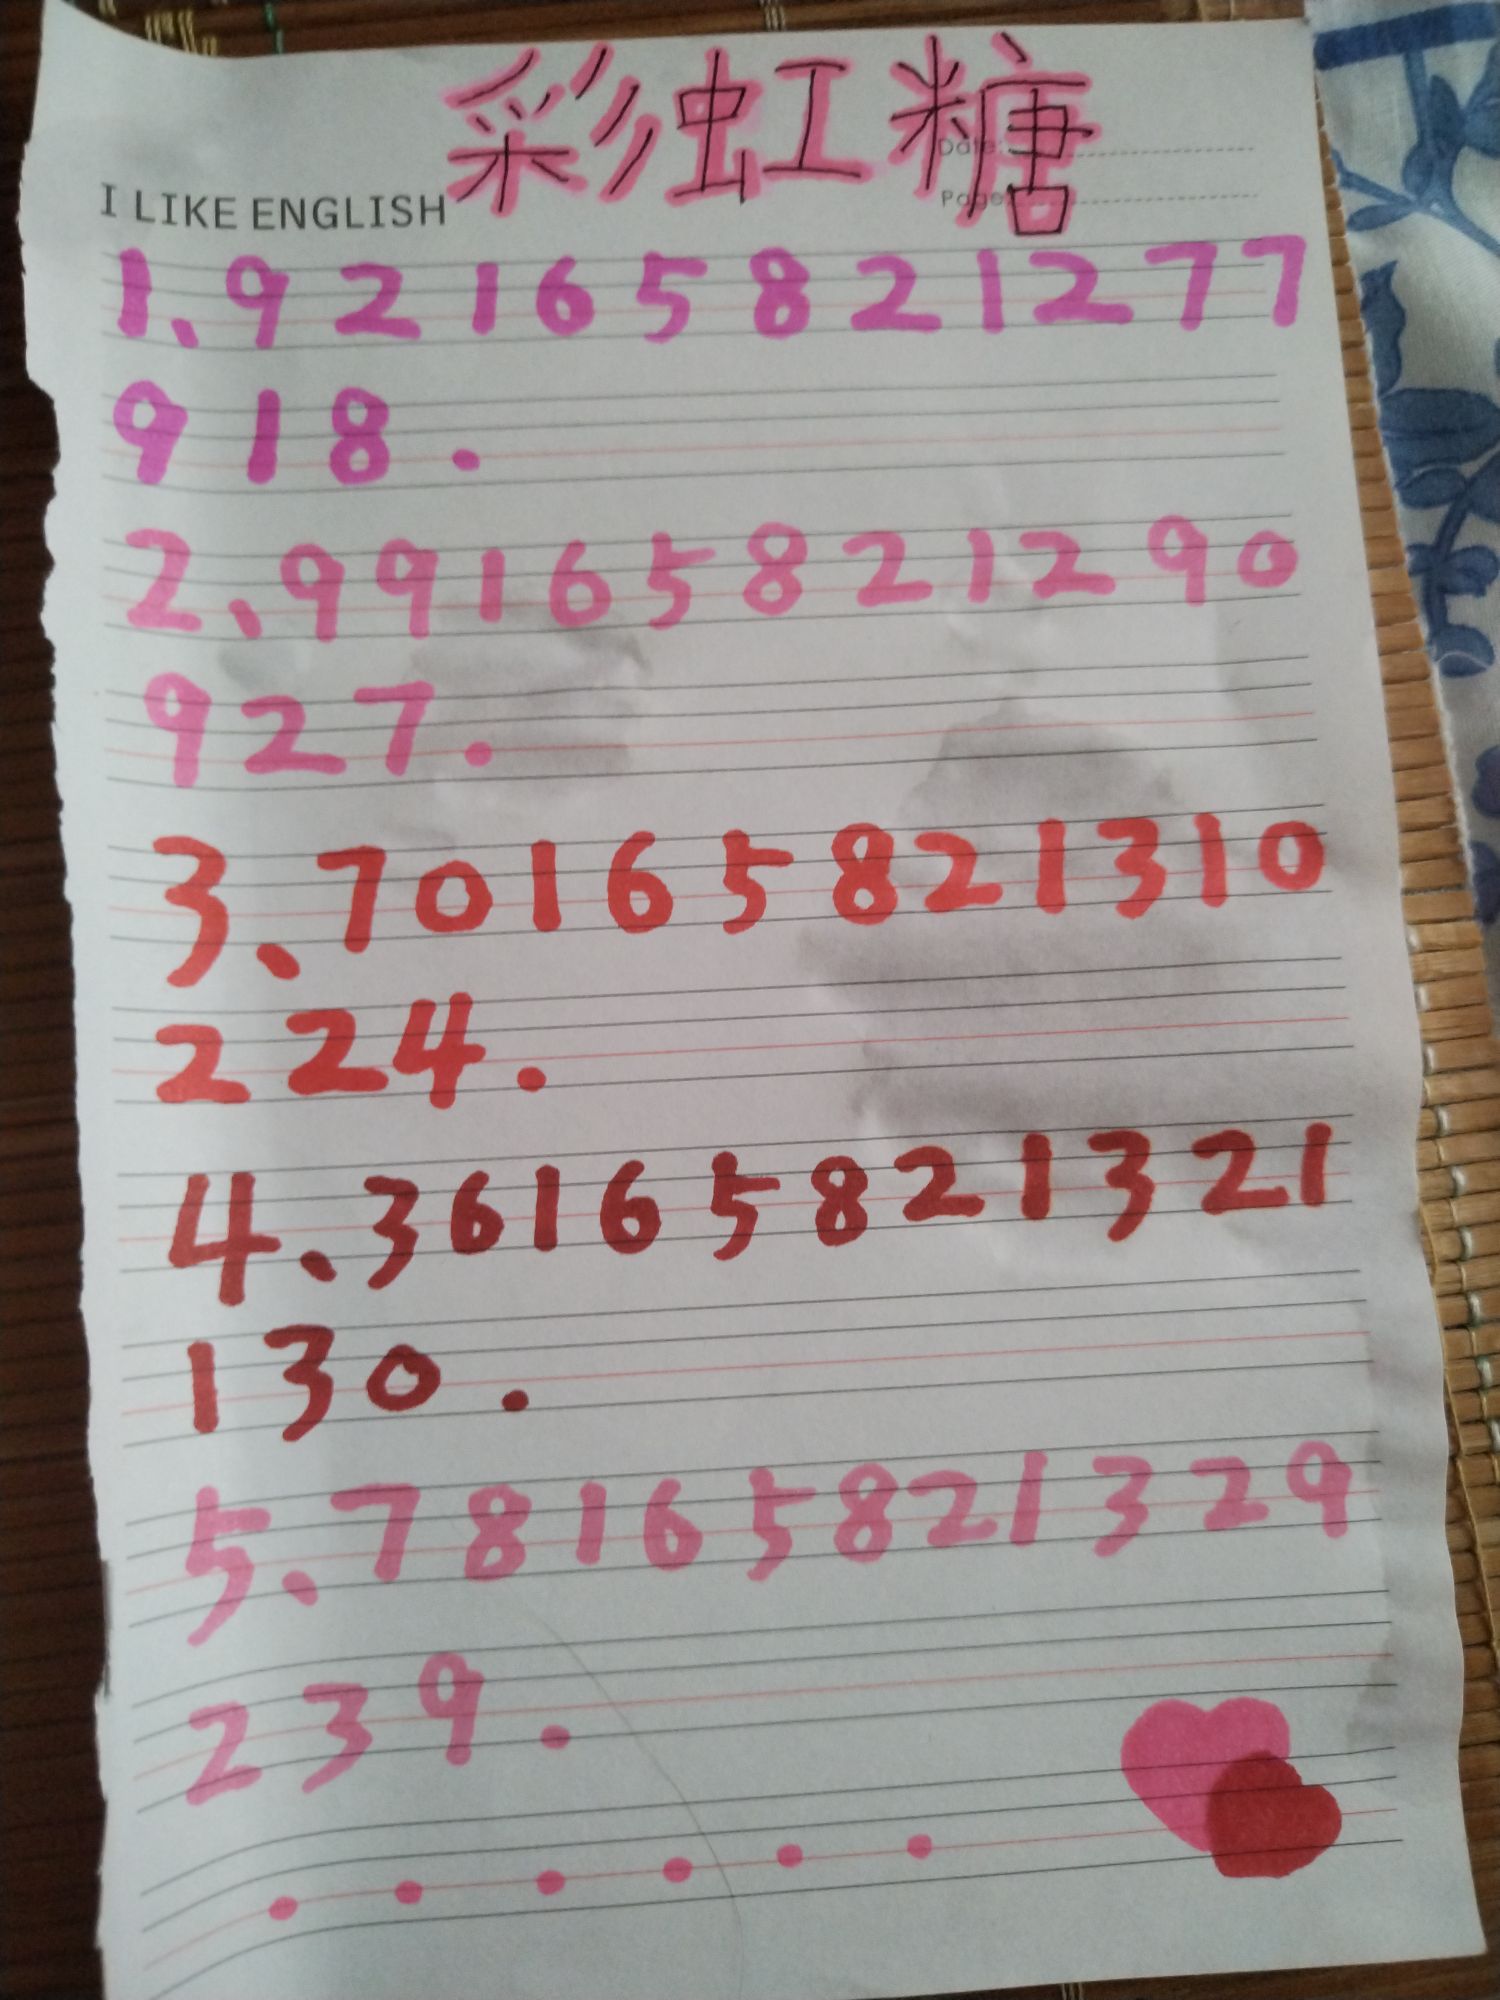 彩虹糖
Date:
Page:
I LIKE ENGLISH
1.92165821277
918.
2.99165821290
927.
3.70165821310
224.
4.36165821321
130.
5.78165821329
239.
......